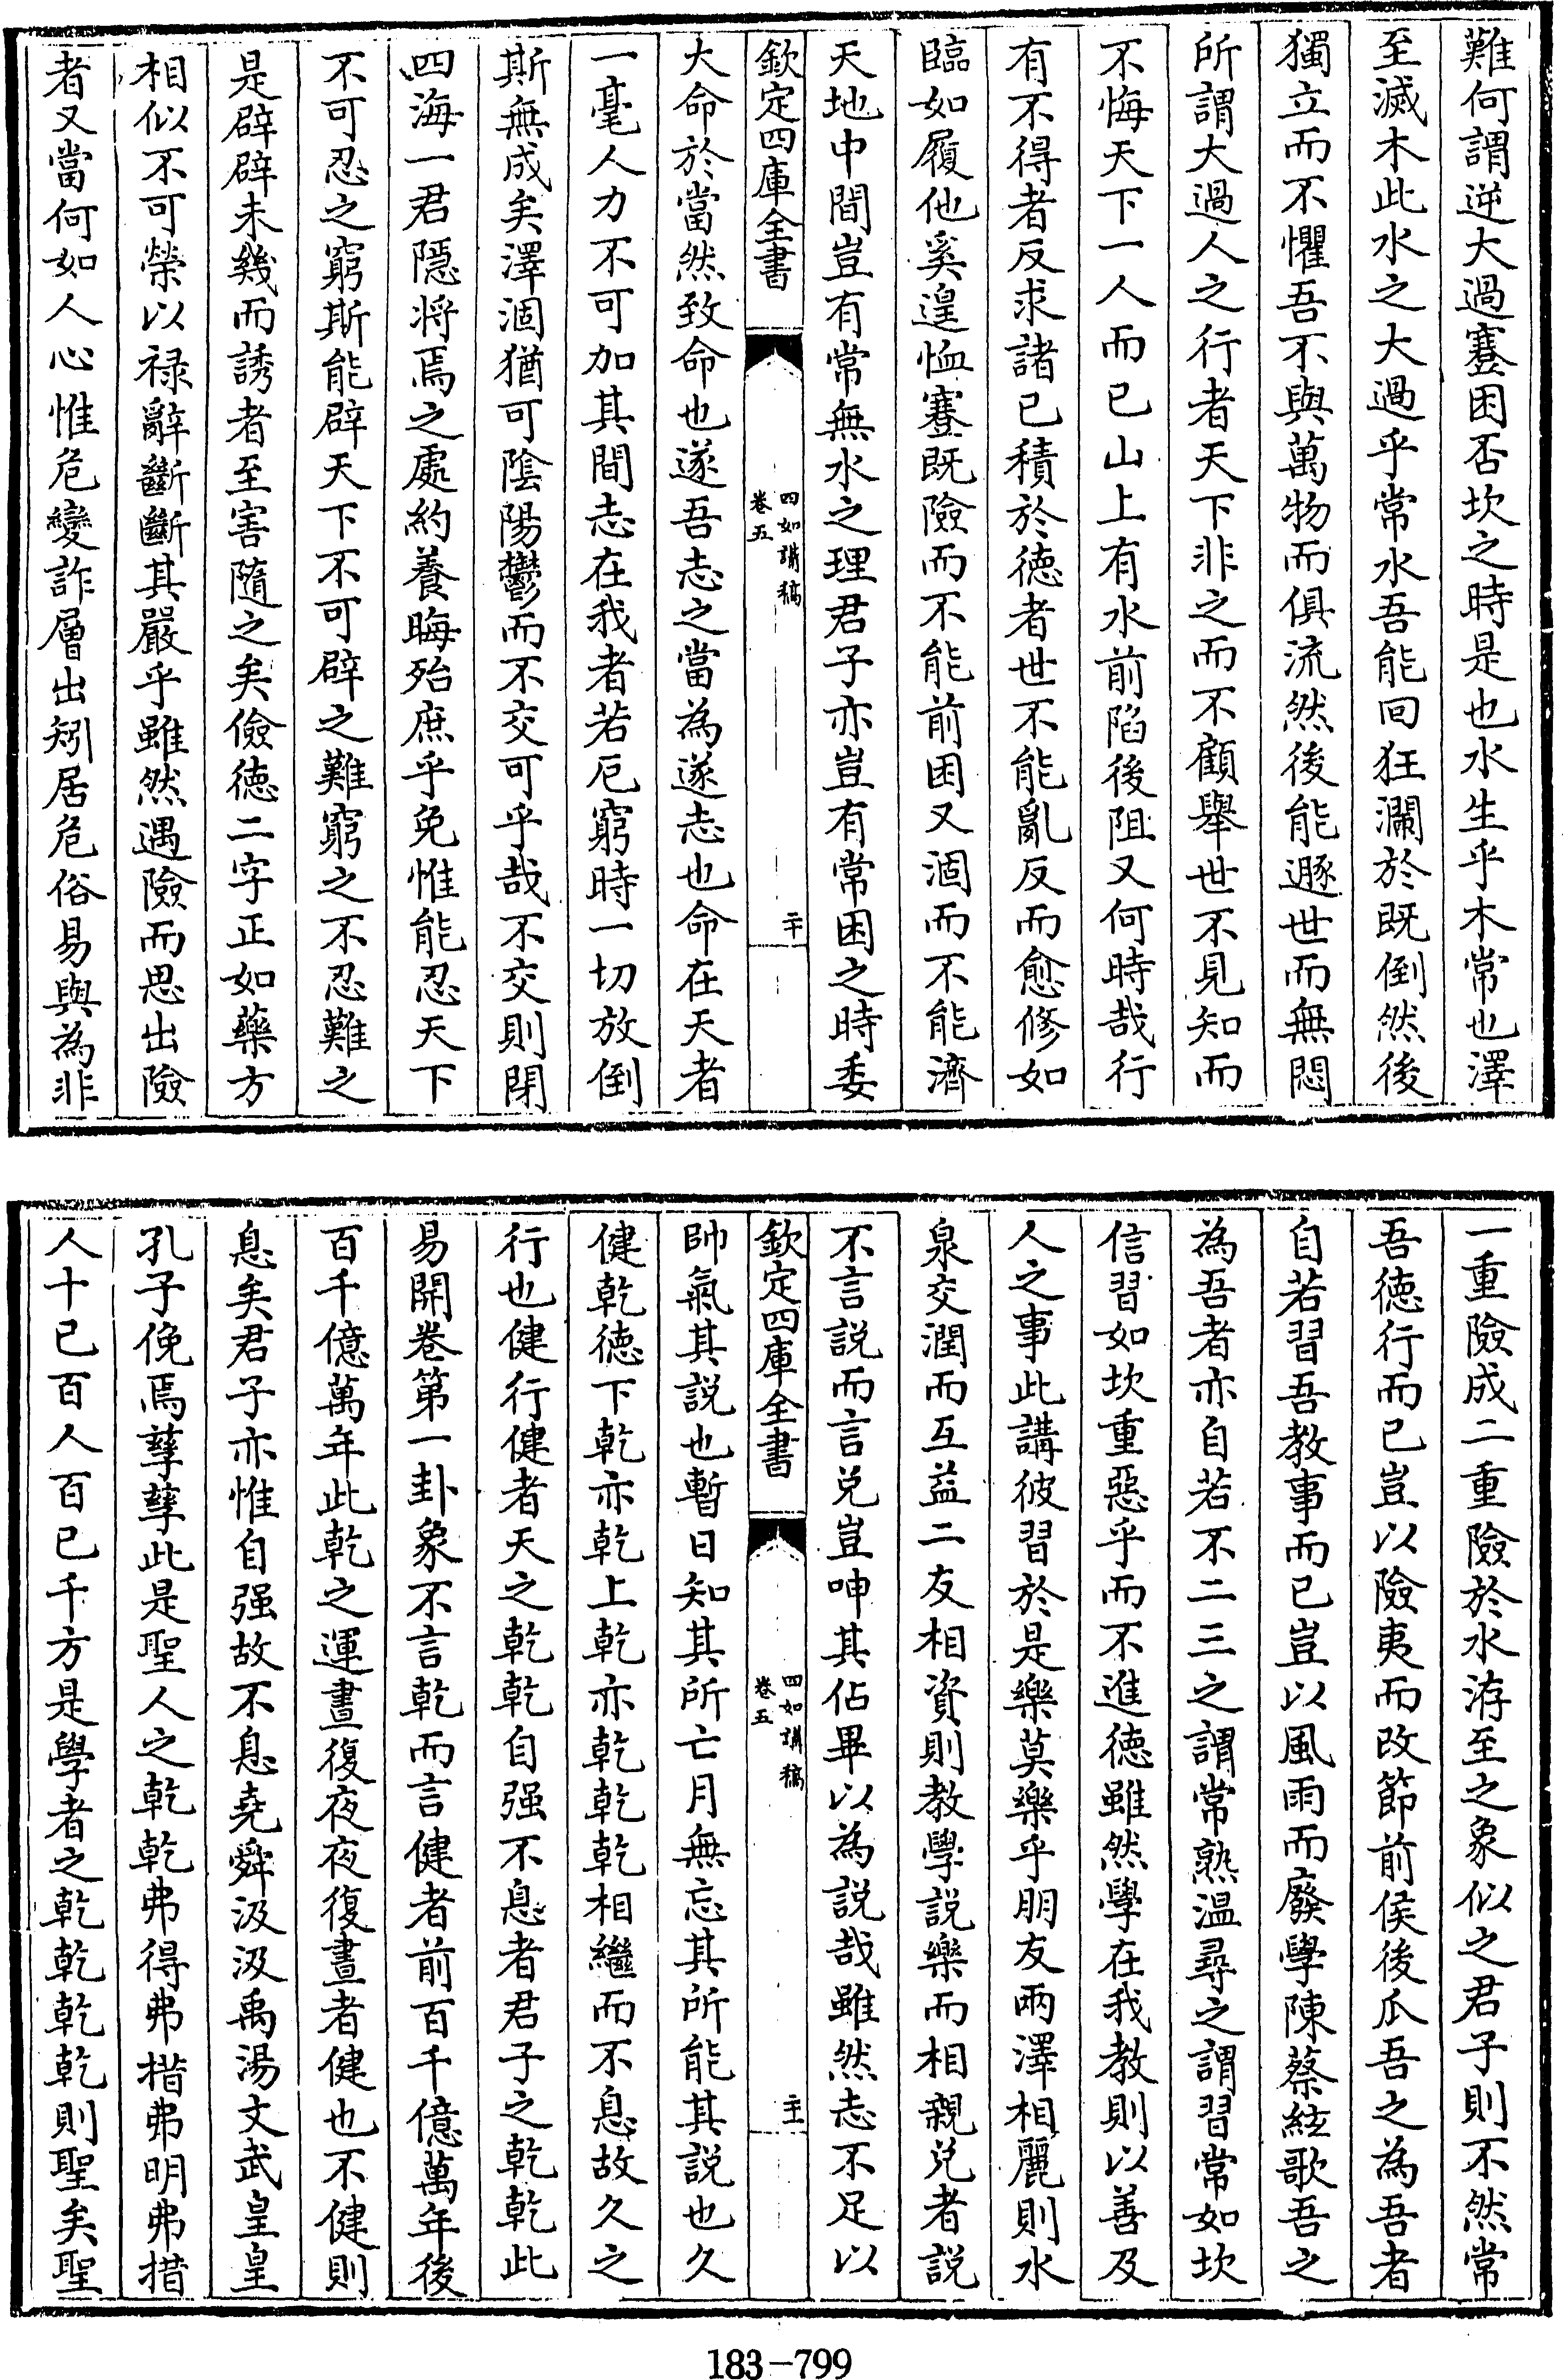 難何謂逆大過蹇困否坎之時是也水生乎木常也澤
至滅木此水之大過乎常水吾能回狂瀾於既倒然後
獨立而不懼吾不與萬物而俱流然後能遯世而無悶
所謂大過人之行者天下非之而不顧舉世不見知而
不悔天下一人而已山上有水前陷後阻又何時哉行
有不得者反求諸已積於德者世不能亂反而愈修如
臨如履他奚遑恤蹇既險而不能前困又涸而不能濟
天地中間豈有常無水之理君子亦豈有常困之時委
欽定四庫全書
四如講稿
卷五
二十
大命於當然致命也遂吾志之當為遂志也命在天者
一毫人力不可加其間志在我者若厄窮時一切放倒
斯無成矣澤涸猶可陰陽鬱而不交可乎哉不交則閉
四海一君隱將焉之處約養晦殆庶乎免惟能忍天下
不可忍之窮斯能辟天下不可辟之難窮之不忍難之
是辟辟未幾而誘者至害隨之矣儉德二字正如藥方
相似不可榮以祿辭斷斷其嚴乎雖然遇險而思出險
者又當何如人心惟危變詐層出矧居危俗易與為非
一重險成二重險於水洊至之象似之君子則不然常
吾德行而已豈以險夷而改節前侯後瓜吾之為吾者
自若習吾教事而已豈以風雨而廢學陳蔡絃歌吾之
為吾者亦自若不二三之謂常熟溫尋之謂習常如坎
信習如坎重惡乎而不進德雖然學在我教則以善及
人之事此講彼習於是樂莫樂乎朋友兩澤相麗則水
泉交潤而互益二友相資則教學說樂而相親兌者說
不言說而言兌豈呻其佔畢以為說哉雖然志不足以
欽定四庫全書
四如講稿
卷五
二十一
帥氣其說也暫日知其所亡月無忘其所能其說也久
健乾德下乾亦乾上乾亦乾乾乾相繼而不息故久之
行也健行健者天之乾乾自强不息者君子之乾乾此
易開卷第一卦象不言乾而言健者前百千億萬年後
百千億萬年此乾之運晝復夜夜復晝者健也不健則
息矣君子亦惟自强故不息堯舜汲汲禹湯文武皇皇
孔子俛焉孳孳此是聖人之乾乾弗得弗措弗明弗措
人十已百人百已千方是學者之乾乾乾乾則聖矣聖
183-799